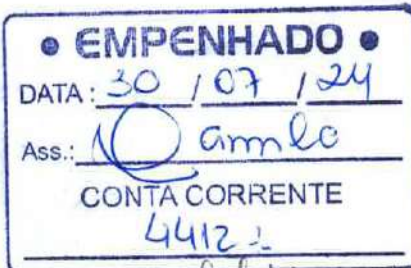 • EMPENHADO •
DATA: 30 / 07 / 24
Ass.:
CONTA CORRENTE
4412